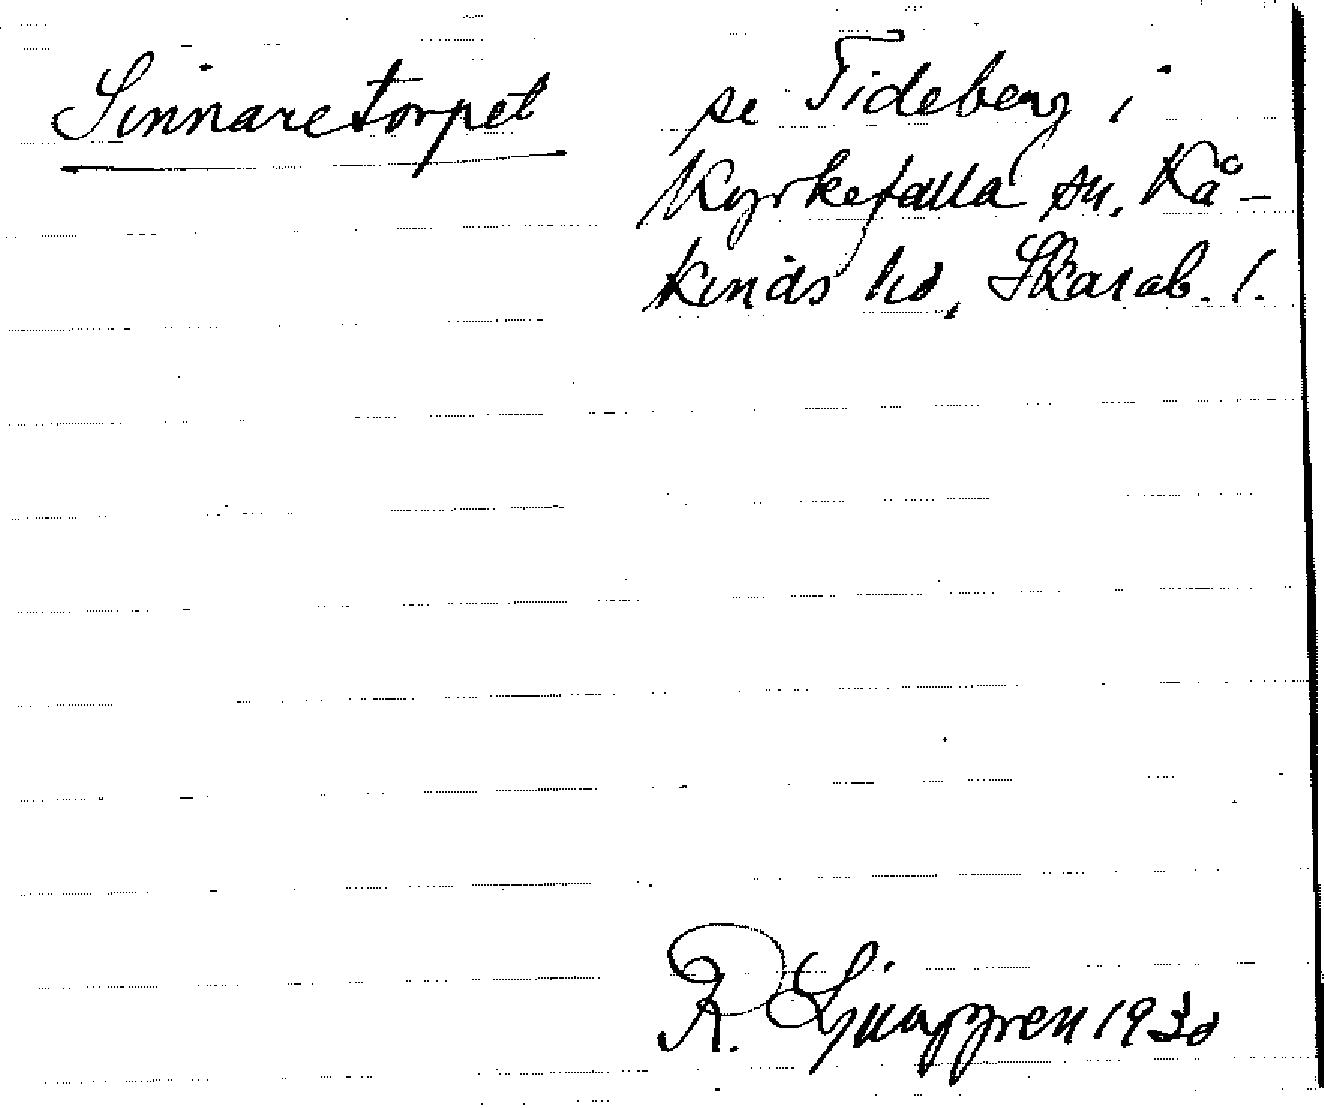 Sinnaretorpet
se Tideberg i
Kyrkefalla sn. Kå-
kinds hd, Skarab. l.
R. Ljunggren 1930